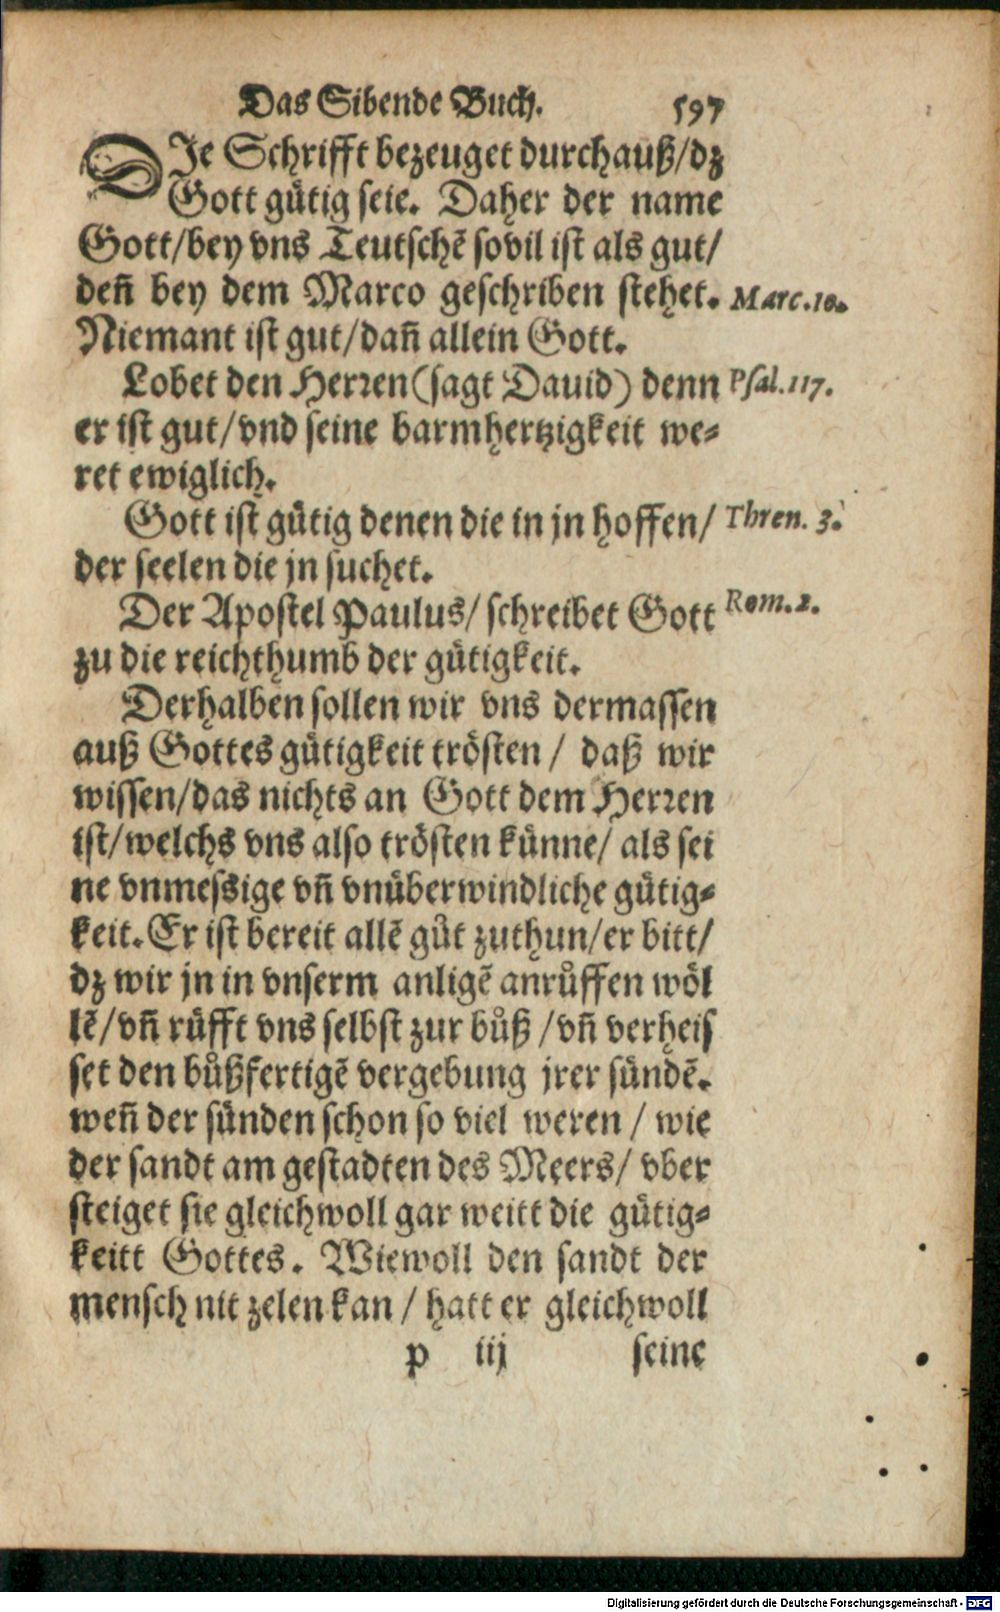 Das Sibende Buch. 597
DIe Schrifft bezeuget durchauß/dz
Gott gütig seie. Daher der name
Gott/bey vns Teutschẽ sovil ist als gut/
deñ bey dem Marco geschriben stehet. Marc.10.
Niemant ist gut/dañ allein Gott.
Lobet den Herren (sagt Dauid) denn Psal.117.
er ist gut/vnd seine barmhertzigkeit we-
ret ewiglich.
Gott ist gütig denen die in jn hoffen/ Thren. 3.
der seelen die jn suchet.
Der Apostel Paulus/ schreibet Gott Rom.2.
zu die reichthumb der gütigkeit.
Derhalben sollen wir vns dermassen
auß Gottes gütigkeit trösten / daß wir
wissen/das nichts an Gott dem Herren
ist/welchs vns also trösten künne/ als sei
ne vnmessige vñ vnüberwindliche gütig-
keit. Er ist bereit allẽ gůt zuthun/er bitt/
dz wir jn in vnserm anligẽ anrůffen wöl
lẽ/vñ rüfft vns selbst zur bůß /vñ verheis
set den bůßfertigẽ vergebung jrer sündẽ.
weñ der sünden schon so viel weren / wie
der sandt am gestadten des Meers/ vber
steiget sie gleichwoll gar weitt die gütig-
keitt Gottes. Wiewoll den sandt der
mensch nit zelen kan / hatt er gleichwoll
p iij seine
Digitalisierung gefördert durch die Deutsche Forschungsgemeinschaft - DFG